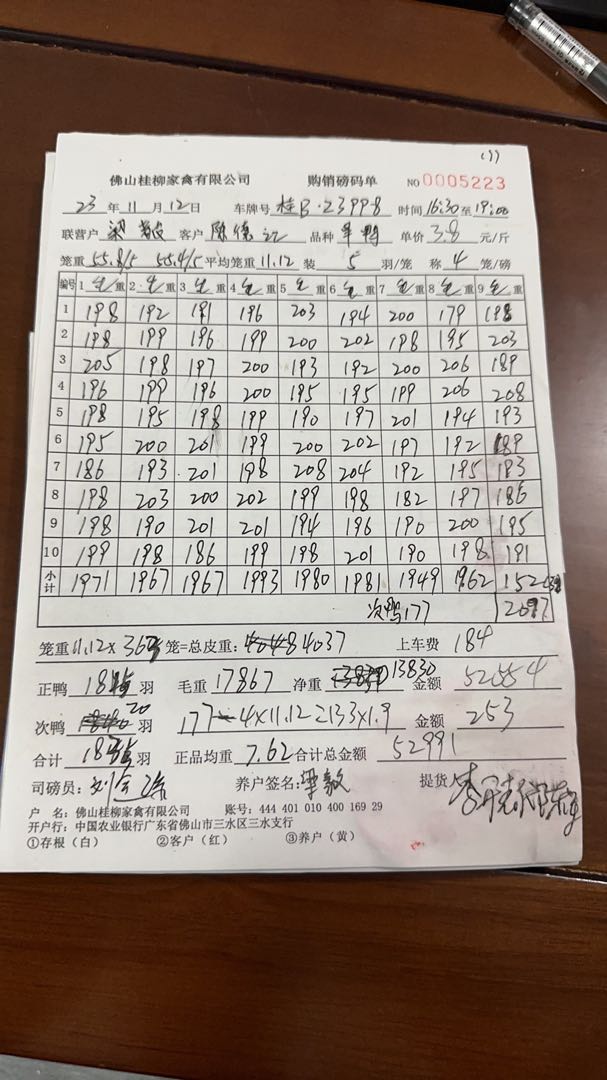 (1)
佛山桂柳家禽有限公司 购销磅码单 NO 0005223
23 年 11 月 12 日 车牌号 桂B·23998 时间 16:30 至 19:00
联营户 梁 客户 陈德 品种 鸭 单价 3.8 元/斤
笼重 55.8/5 55.4/5 平均笼重 11.12 装 5 羽/笼 称 4 笼/磅
编号 1 毛重 2 毛重 3 毛重 4 毛重 5 毛重 6 毛重 7 毛重 8 毛重 9 毛重
1 198 192 191 196 203 194 200 179 198
2 198 199 196 199 200 202 198 195 203
3 205 198 197 200 193 192 200 206 189
4 196 199 196 200 195 195 199 206 208
5 198 195 198 199 190 197 201 194 193
6 195 200 201 199 200 202 197 192 189
7 186 193 201 198 208 204 192 195 193
8 198 203 200 202 199 198 182 197 186
9 198 190 201 201 194 196 190 200 195
10 199 198 186 199 198 201 190 198 191
小计 1971 1967 1967 1993 1980 1981 1949 1962 152
次鸭177 2097
笼重 11.12× 363 笼=总皮重: 4037 上车费 184
正鸭 羽 毛重 17867 净重 13830 金额 52554
次鸭 20 羽 177-4×11.12=133×1.9 金额 253
合计 羽 正品均重 7.62 合计总金额 52991
司磅员: 刘 养户签名: 梁毅 提货 李
户 名: 佛山桂柳家禽有限公司 账号: 444 401 010 400 169 29
开户行: 中国农业银行广东省佛山市三水区三水支行
①存根（白） ②客户（红） ③养户（黄）